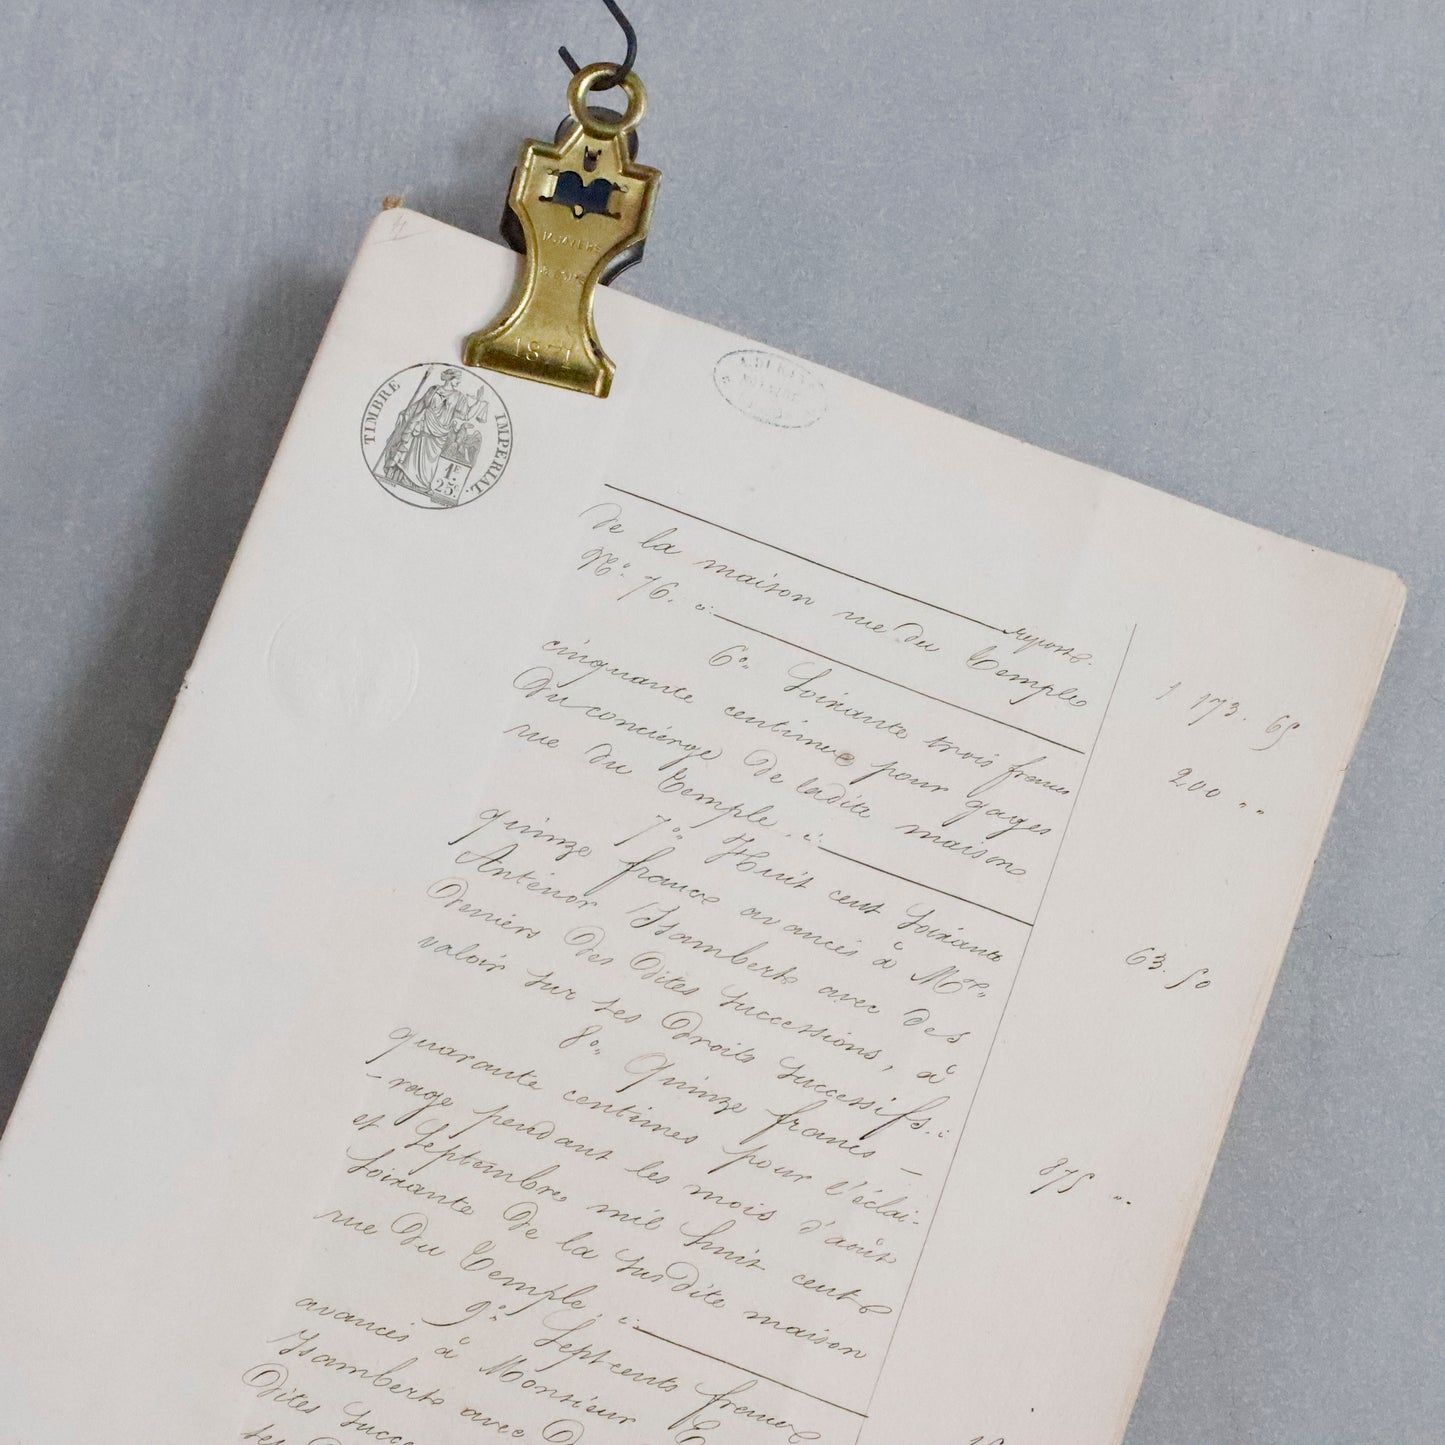 1871
TIMBRE IMPERIAL.
1F.
25c.
reporte. 1 173. 65
de la maison rue du Temple
No. 76. 200 "
6o. Soixante trois francs
cinquante centimes pour gages
du concierge de ladite maison
rue du Temple. 63. 50
7o. Huit cent soixante
quinze francs avancés à Mr.
Anténor Isambert avec des
deniers des dites successions, à
valoir sur ses droits successifs. 875 "
8o. Quinze francs
quarante centimes pour l'éclai-
-rage pendant les mois d'août
et Septembre mil huit cent
soixante de la susdite maison
rue du Temple.
9o. Sept cents francs
avancés à Monsieur
Isambert avec
dites